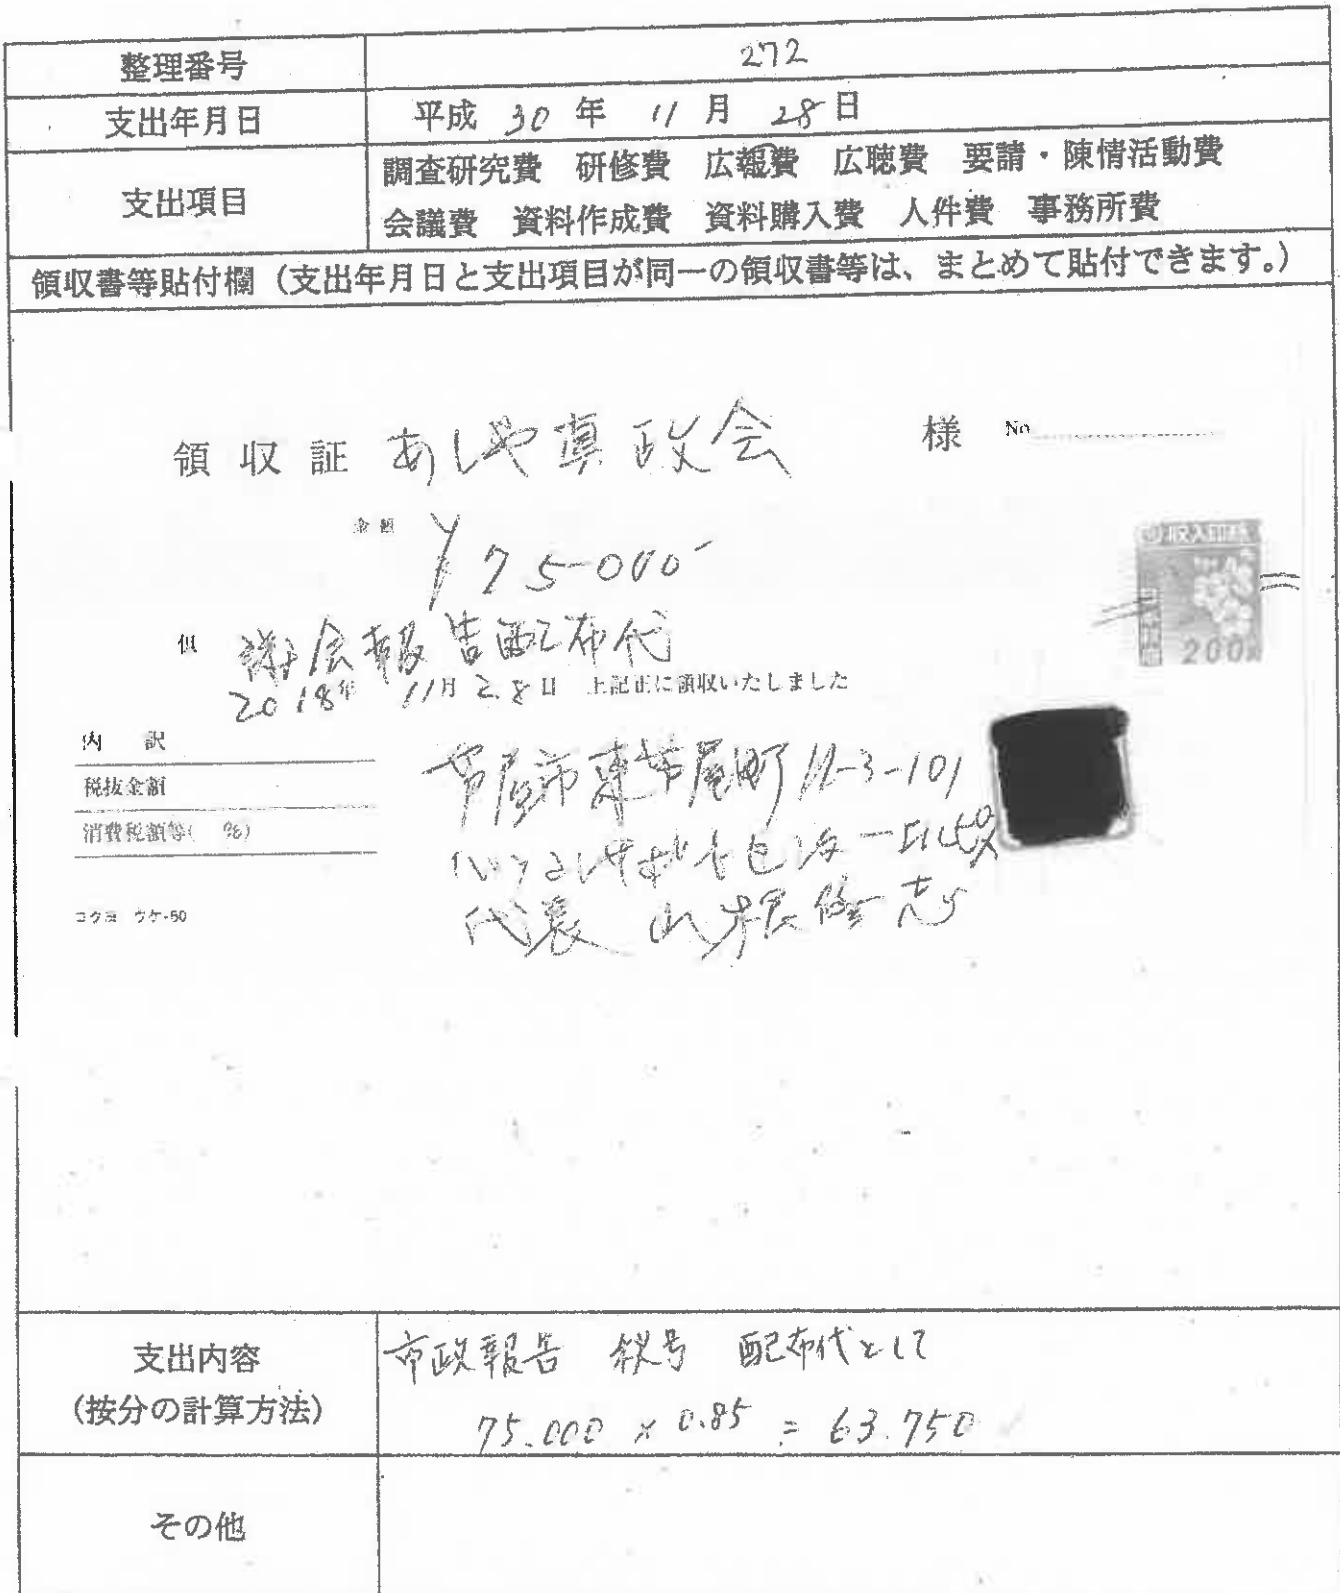 整理番号 272
支出年月日 平成 30 年 11 月 28 日
支出項目
調査研究費 研修費 広報費 広聴費 要請・陳情活動費
会議費 資料作成費 資料購入費 人件費 事務所費
領収書等貼付欄（支出年月日と支出項目が同一の領収書等は、まとめて貼付できます。）
領収証 あしや真政会 様 No
金額 ¥75-000-
但 議会報告配布代
2018年 11月 28日 上記正に領収いたしました
収入印紙
200
内 訳
税抜金額
消費税額等( %)
コクヨ ウケ-50
芦屋市東芦屋町11-3-101
代表 山根
支出内容
(按分の計算方法)
市政報告 秋号 配布代として
75.000 × 0.85 = 63.750
その他